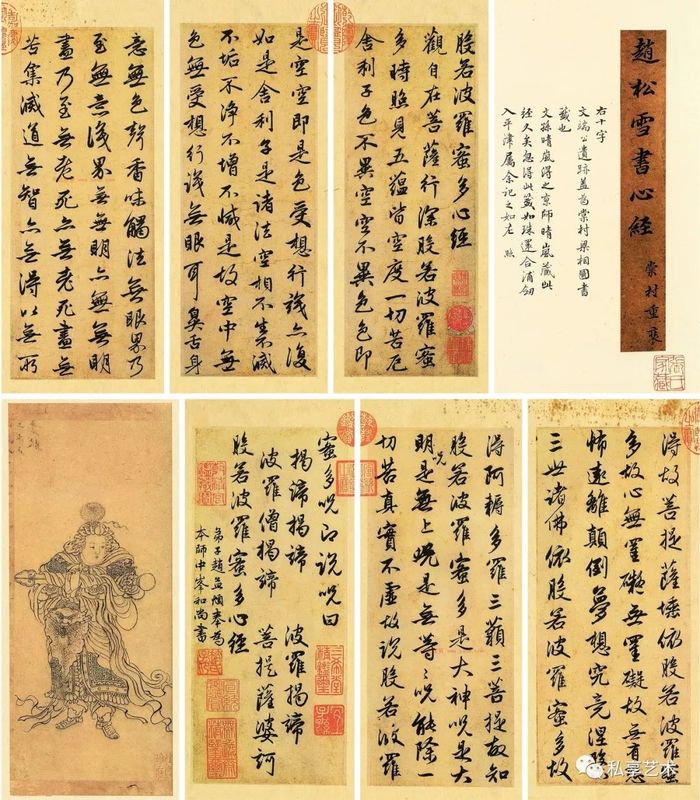 趙松雪書心經
棠村重裝
右十字
文端公遺跡蓋為棠村梁相國書
藏也
文孫晴嵐得之京師晴嵐藏此
經久矣忽得此籤如珠還合浦劍
入平津屬余記之如左
般若波羅蜜多心經
觀自在菩薩行深般若波羅蜜
多時照見五蘊皆空度一切苦厄
舍利子色不異空空不異色色即
是空空即是色受想行識亦復
如是舍利子是諸法空相不生不滅
不垢不淨不增不減是故空中無
色無受想行識無眼耳鼻舌身
意無色聲香味觸法無眼界乃
至無意識界無無明亦無無明
盡乃至無老死亦無老死盡無
苦集滅道無智亦無得以無所
得故菩提薩埵依般若波羅蜜
多故心無罣礙無罣礙故無有恐
怖遠離顛倒夢想究竟涅槃
三世諸佛依般若波羅蜜多故
得阿耨多羅三藐三菩提故知
般若波羅蜜多是大神呪是大
明呪是無上呪是無等等呪能除一
切苦真實不虛故說般若波羅
蜜多呪即說呪曰
揭諦揭諦 波羅揭諦
波羅僧揭諦 菩提薩婆訶
般若波羅蜜多心經
弟子趙孟頫奉為
本師中峯和尚書
私募艺术